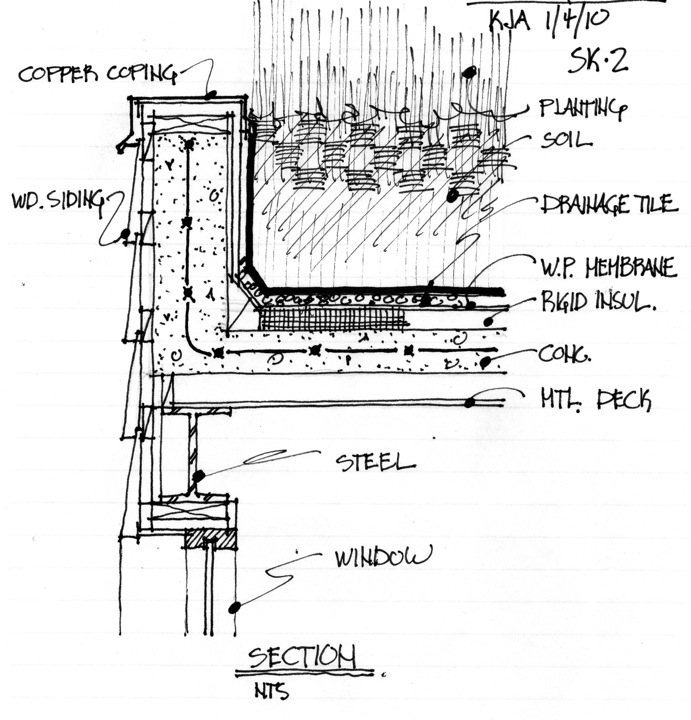 KJA 1/4/10
SK·2
COPPER COPING
PLANTING
SOIL
WD. SIDING
DRAINAGE TILE
W.P. MEMBRANE
RIGID INSUL.
CONC.
MTL. DECK
STEEL
WINDOW
SECTION
NTS